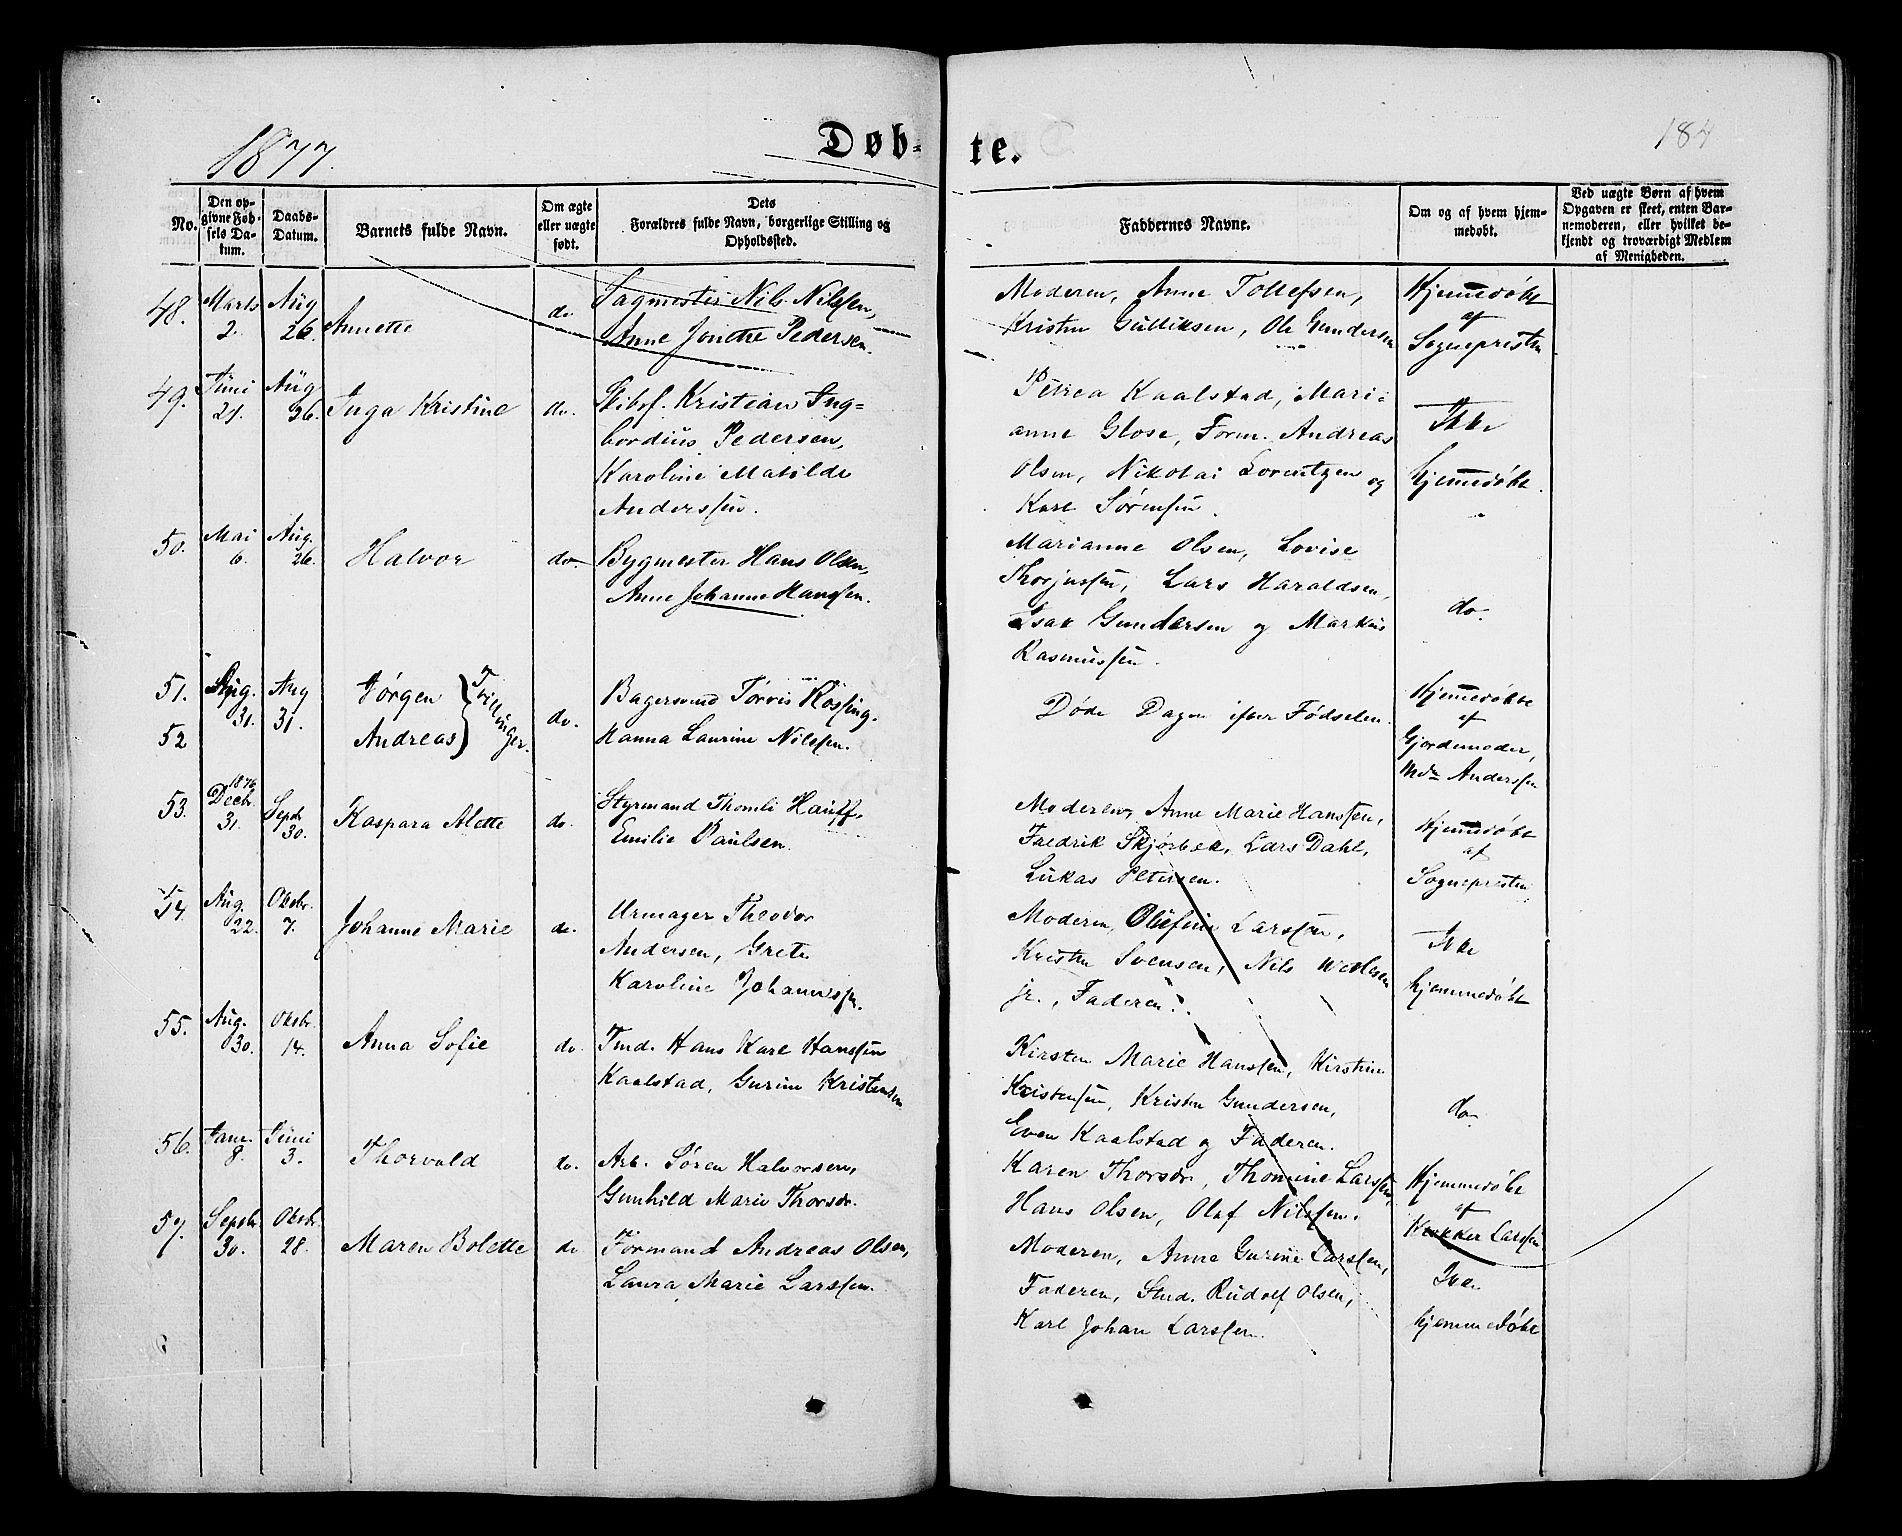 1877.
Døb-
te.
184
No.
Den op-
givne Fød-
sels Da-
tum.
Daabs-
Datum.
Barnets fulde Navn.
Om ægte
eller uægte
født.
Dets
Forældres fulde Navn, borgerlige Stilling og
Opholdssted.
Faddernes Navne.
Om og af hvem hjem-
medøbt.
Ved uægte Børn af hvem
Opgaven er skeet, enten Bar-
nemoderen, eller hvilket be-
kjendt og troværdigt Medlem
af Menigheden.
48.
Marts
2.
Aug
26.
Annette
do
Sagmester Nils Nilssen,
Anne Jonette Pedersen.
Moderen, Anne Tollefsen,
Kristen Gulliksen, Ole Gundersen
Hjemmedøbt
af
Sognepresten
49.
Juni
21.
Aug
26.
Inga Kristine
do.
Skibsf. Kristian Ing-
bordius Pedersen,
Karoline Matilde
Anderssen.
Petrea Kaalstad, Mari-
anne Glose, Form. Andreas
Olsen, Nikolai Lorentzen og
Karl Sørensen.
Ikke
hjemmedøbt.
50.
Mai
6.
Aug.
26.
Halvor
do.
Bygmester Hans Olsen,
Anne Johanne Hanssen.
Marianne Olsen, Lovise
Thorjussen, Lars Haraldsen,
Isak Gundersen og Markus
Rasmussen.
do.
51.
52
Aug.
31.
Aug
31.
Jørgen
Andreas
Tvillinger.
do.
Bagersvend Törris Rössing.
Hanna Laurine Nilssen.
Døde Dagen efter Fødselen.
Hjemmedøbte
af
Gjordemoder,
Mdm Anderssen
53.
1876
Decbr.
31.
Septr
30.
Kaspara Alette
do.
Styrmand Thomli Hauff,
Emilie Paulsen.
Moderen, Anne Marie Hanssen,
Fredrik Skjørbek, Lars Dahl,
Lukas Petersen.
Hjemmedøbt
af
Sognepresten
54.
Aug.
22.
Oktbr.
7.
Johanne Marie
do.
Urmager Theodor
Andersen, Grete
Karoline Johannssen.
Moderen, Olufine Larssen,
Kristen Svensen, Nils
jr., Faderen.
Ikke
hjemmedøbt
55.
Aug.
30.
Oktbr.
14.
Anna Sofie
do.
Tmd. Hans Karl Hanssen
Kaalstad, Gurine Kristensen
Kirsten Marie Hanssen, Kirstine
Kristensen, Kristen Gundersen,
Even Kaalstad og Faderen.
do.
56.
Janr.
8.
Juni
3.
Thorvald
do.
Arb. Søren Halvorsen,
Gunhild Marie Thorsdr.
Karen Thorsdr, Thomine Larssen,
Hans Olsen, Olaf Nilssen.
Hjemmedøbt
af
Kirkker Larssen
57.
Septbr.
30.
Oktbr.
28.
Maren Bolette
do
Formand Andreas Olsen,
Laura Marie Larssen.
Moderen, Anne Gurine Larssen,
Faderen, Stud. Rudolf Olsen,
Karl Johan Larssen.
Ikke
hjemmedøbt